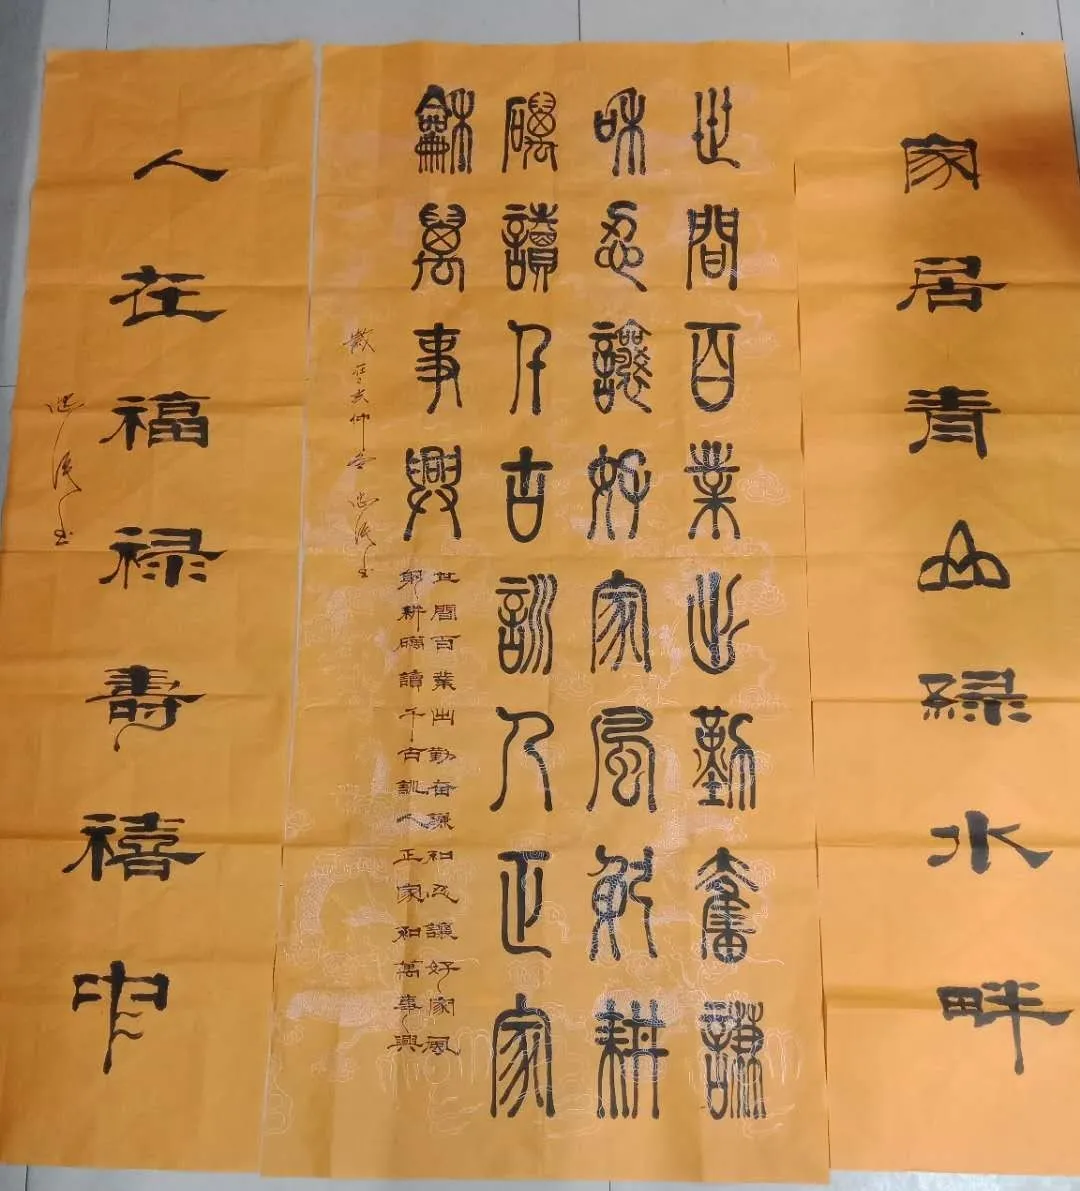 家居青山緑水畔
世間百業出勤奮謙
和忍讓好家風躬耕
礪讀千古訓人正家
龢萬事興
世間百業出勤奋謙和忍讓好家風
躬耕礪讀千古訓人正家和萬事興
人在福禄壽禧中